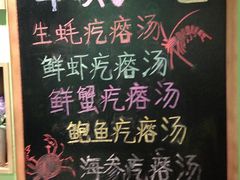 生蚝疙瘩汤
鲜虾疙瘩汤
鲜蟹疙瘩汤
鲍鱼疙瘩汤
海参疙瘩汤